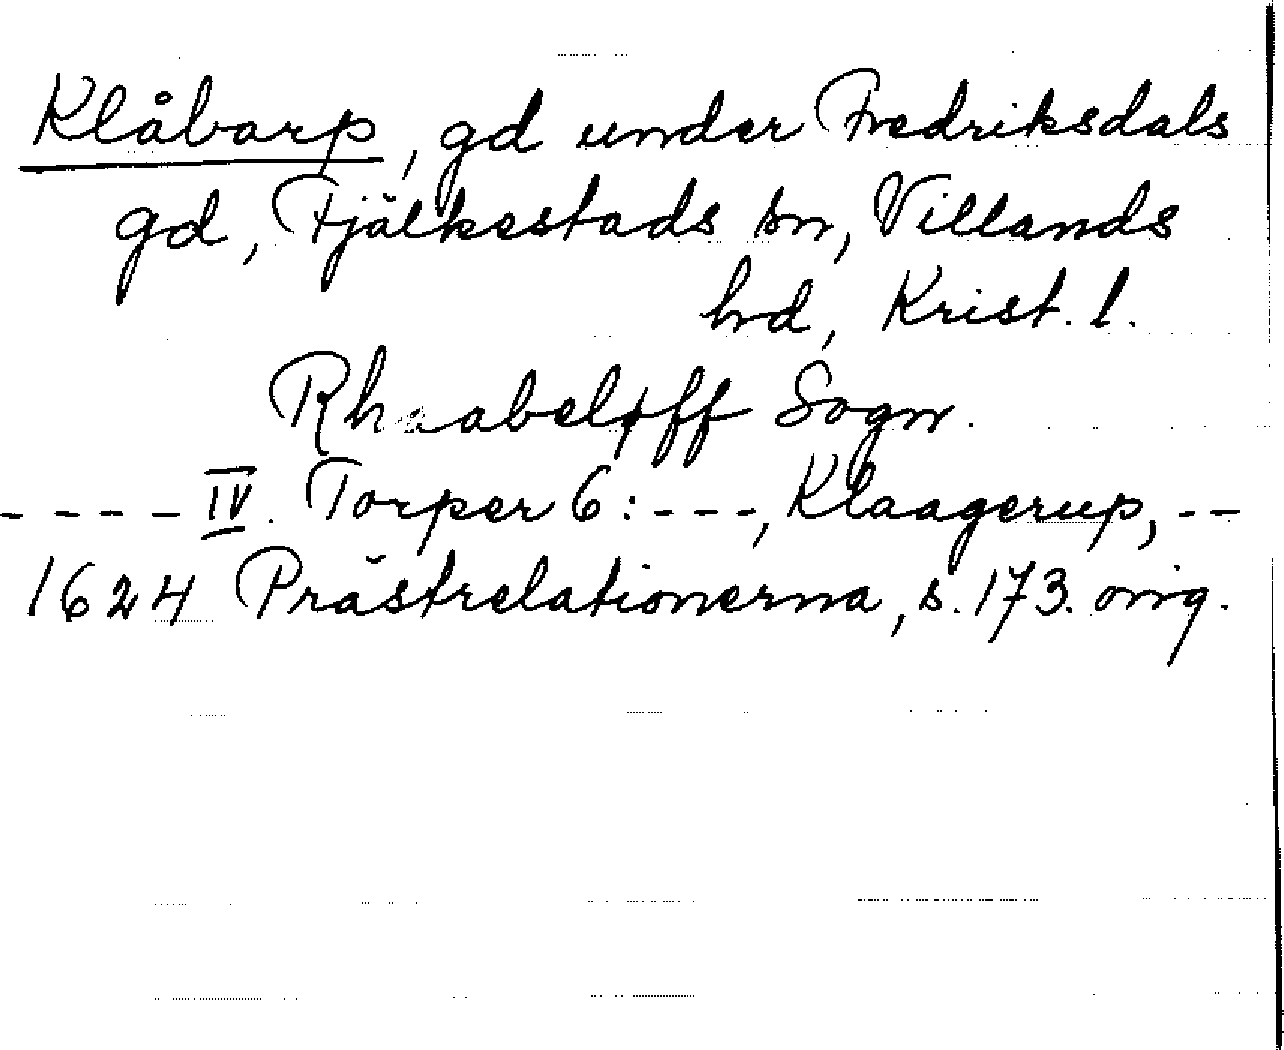 Klåbarp, gd under Fredriksdals
gd, Fjälkestads sn, Villands
hd, Krist. l.
Rhaabeløff Sogn.
- - - - IV. Torper 6: - - -, Klaagerup, - -
1624 Prästrelationerna, s. 173. orig.